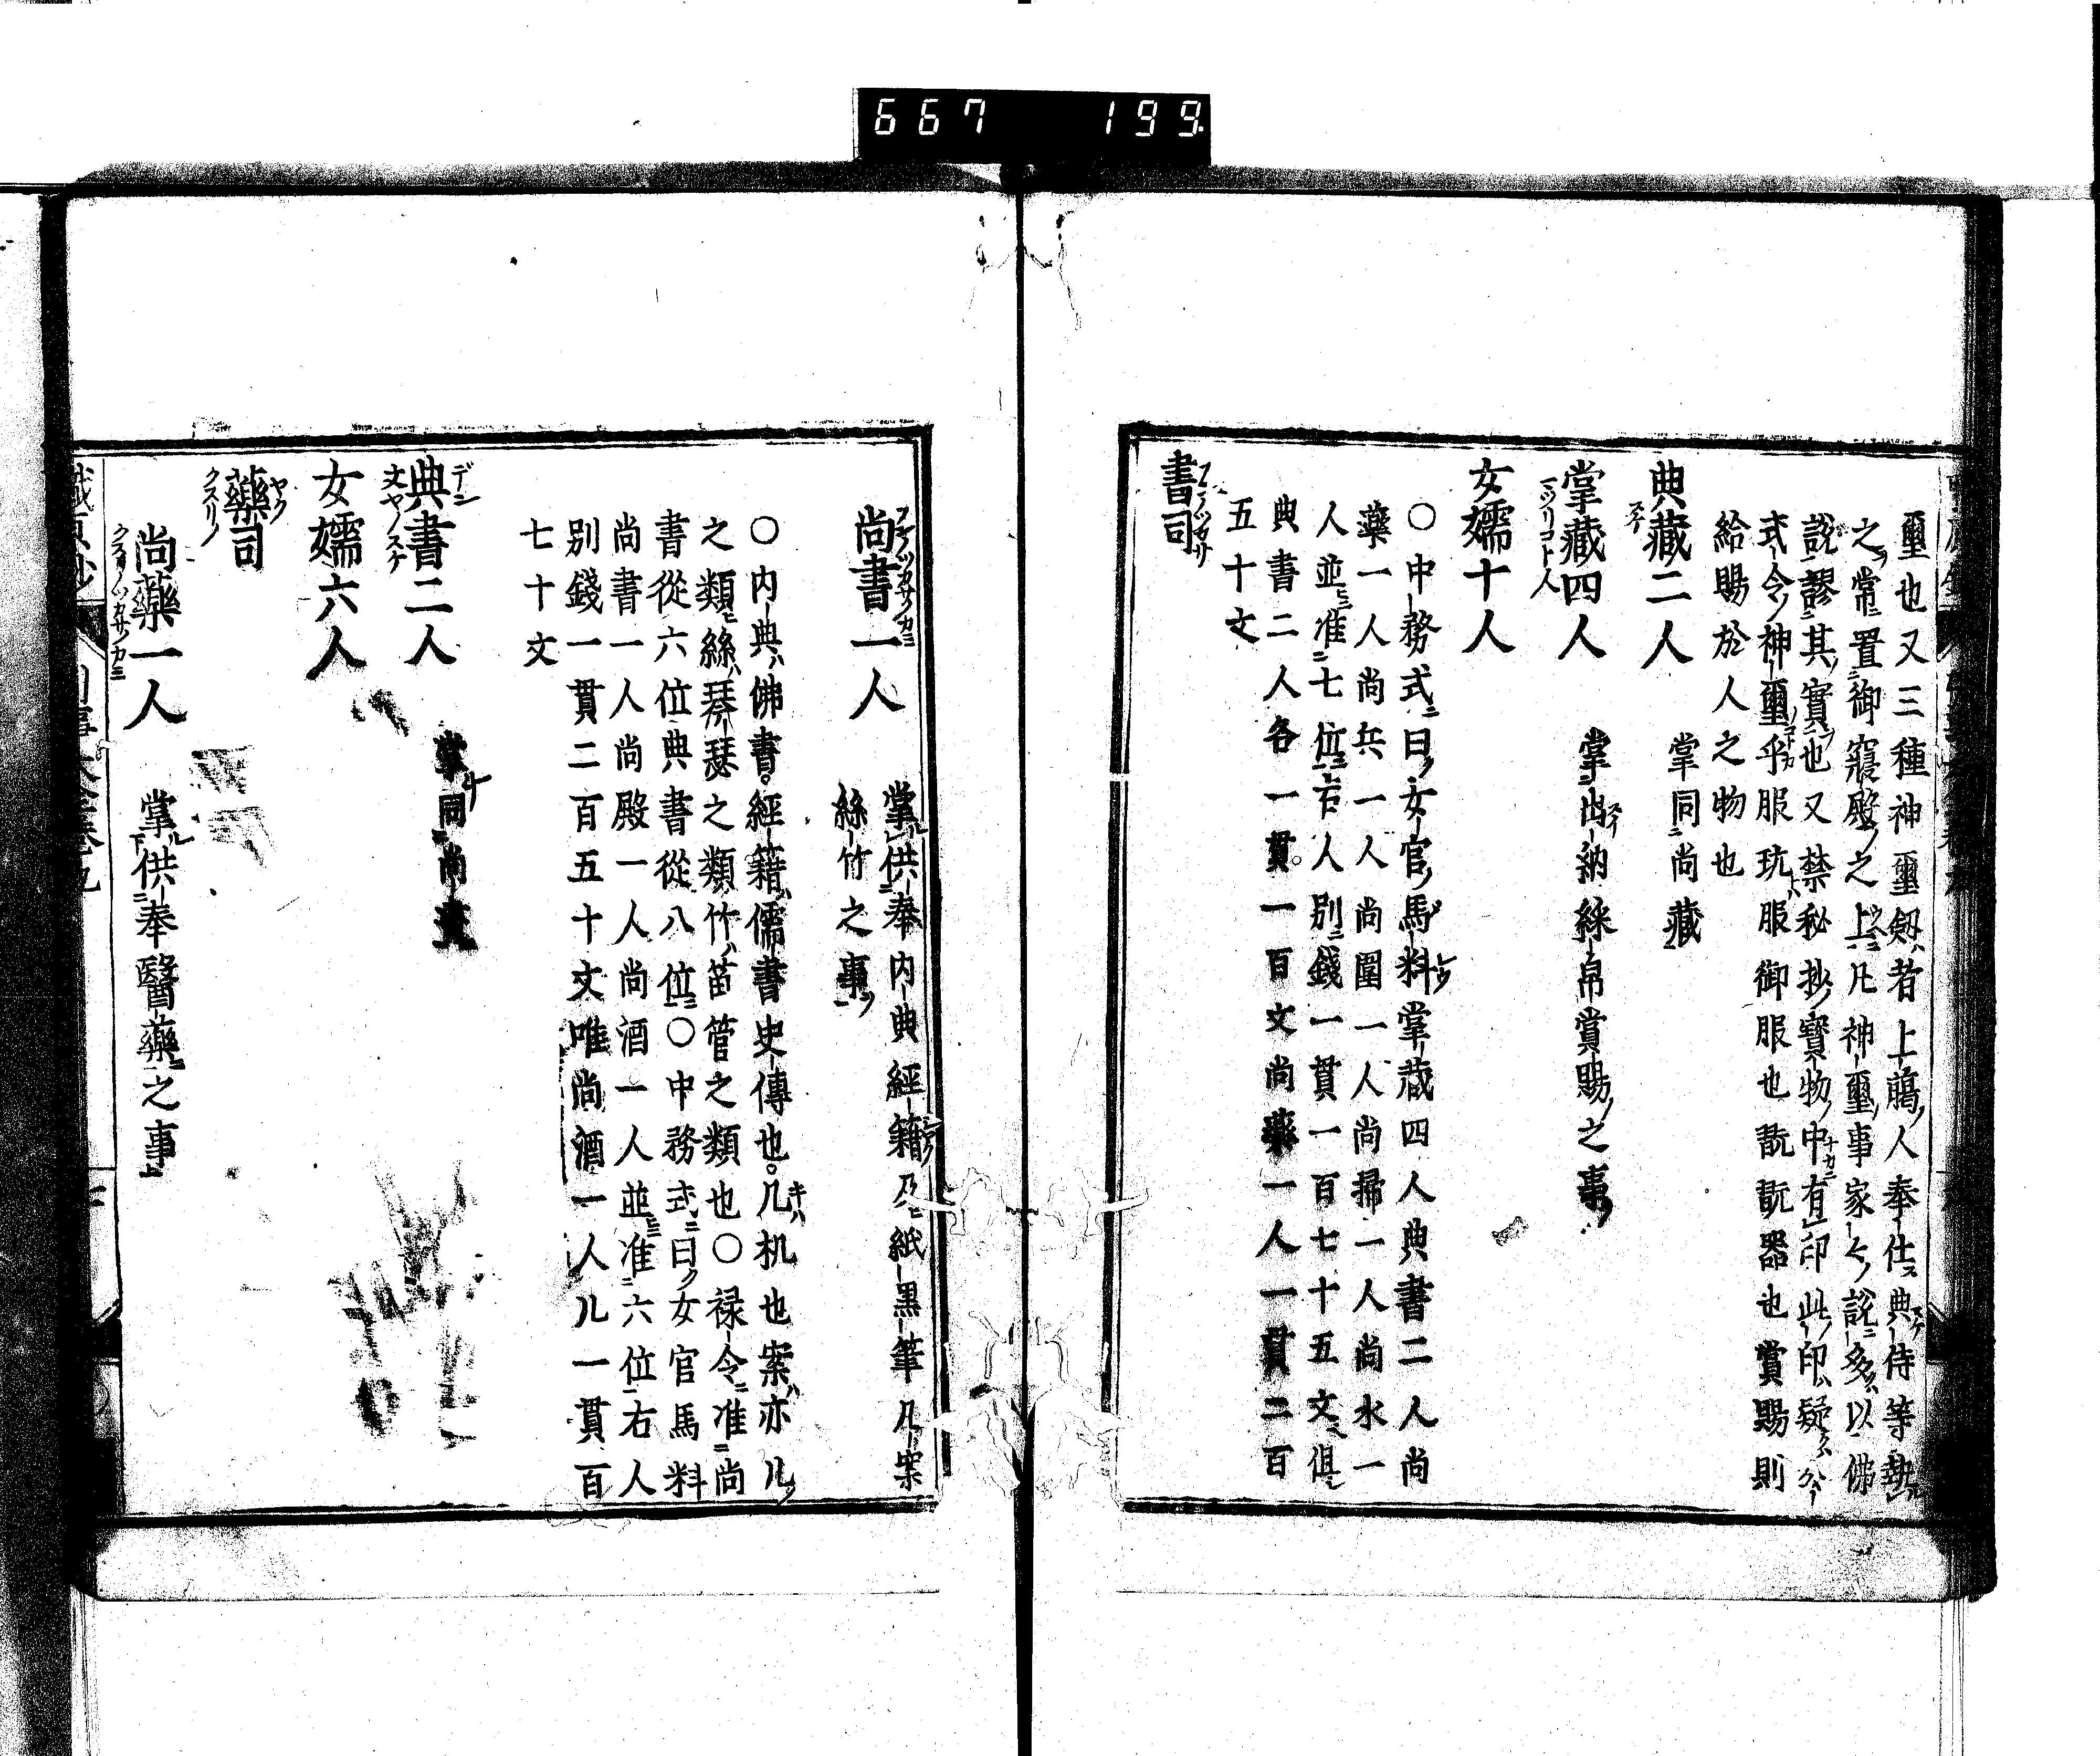 667 199
璽也又三種神璽劔者上﨟人奉仕典侍等執
之常置御寢殿之上凡神璽事家々説多以佛
説謬其實也又禁秘抄寳物中有印此印疑公
式令神璽乎服玩服御服也翫翫器也賞賜則
給賜於人之物也
典藏二人 掌同尚藏
掌藏四人 掌出納綵帛賞賜之事
女孺十人
〇中務式曰女官馬料掌蔵四人典書二人尚
藥一人尚兵一人尚闈一人尚掃一人尚水一
人並准七位右人別錢一貫一百七十五文俱
典書二人各一貫一百文尚藥一人一貫二百
五十文
書司
尚書一人 掌供奉内典經籍及紙墨筆几案
絲竹之事
〇内典佛書經籍儒書史傳也几机也案亦几
之類絲琴瑟之類竹笛管之類也〇禄令准尚
書從六位典書從八位〇中務式曰女官馬料
尚書一人尚殿一人尚酒一人並准六位右人
别錢一貫二百五十文唯尚酒一人一貫百
七十文
典書二人 掌同尚書
女孺六人
藥司
尚藥一人 掌供奉醫藥之事